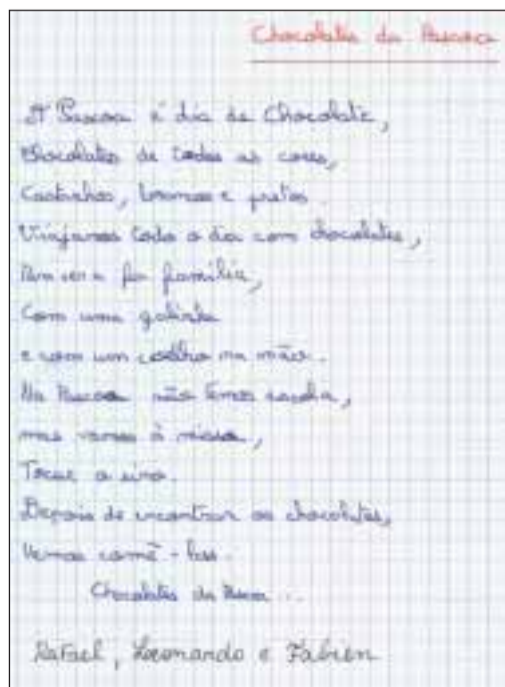 Chocolates da Páscoa
A Páscoa é dia de Chocolate,
Chocolates de todas as cores,
Castanhos, brancos e pretos.
Viajamos todo o dia com chocolates,
Para ver a família,
Com uma galinha
e com um coelho na mão.
Na Páscoa não temos escola,
mas vamos à missa,
Tocar o sino.
Depois de encontrar os chocolates,
Vamos comê-los.
Chocolates da Páscoa...
Rafael, Leonardo e Fabien